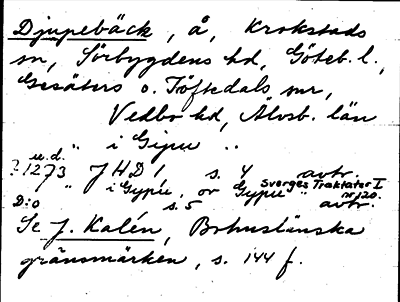 Djupebäck, å, Krokstads
sn, Sörbygdens hd, Göteb. l.,
Gesäters o. Töftedals snr,
Vedbo hd, Älvsb. län
" i Gipu ..
u.d.
? 1273 JHD 1, s. 4 avtr.
" i Gypu, or Gypu " Sverges Traktater I nr 120.
D:o s. 5 avtr.
Se J. Kalén, Bohuslänska
gränsmärken, s. 144 f.